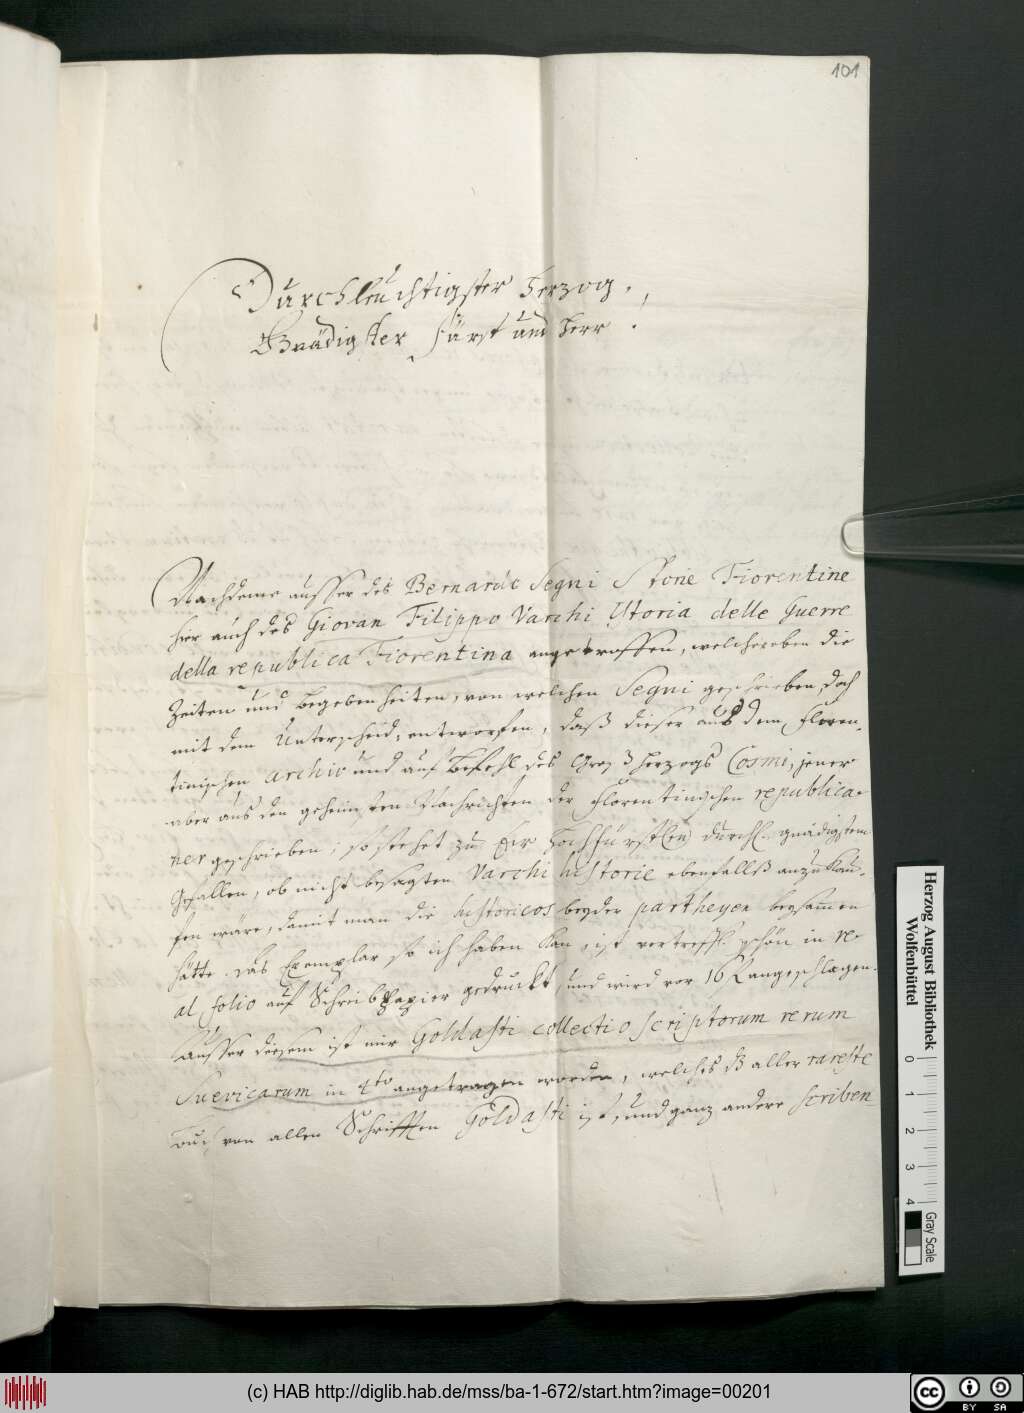 101
Durchleuchtigster Herzog,
Gnädigster Fürst und Herr.
Nachdeme ausser des Bernardi Segni Storie Fiorentine
hier auch des Giovan Filippo Varchi Ystoria delle Guerre
della republica Fiorentina angetroffen, welcher eben die
Zeiten und Begebenheiten, von welchen Segni geschrieben, doch
mit dem Unterscheid, entworffen, daß dieser aus dem Floren-
tinischen archiv und auf Befehl des Groß Herzogs Cosmi, jener
aber aus den geheimsten Nachrichten der Florentinischen republica-
ner geschrieben; so stehet zu Ew Hochfürstlen durchl. gnädigstem
Gefallen, ob nicht besagten Varchi historie ebenfallß anzukauf-
fen wäre, damit man die historicos beyder partheyen beysammen
hätte. Das Exemplar so ich haben kan, ist vortreffl. schön in re-
al folio auf Schreibpapier gedruckt, und wird vor 16 angeschlagen.
Ausser diesem ist mir Goldasti collectio scriptorum rerum
Suevicarum in 4to angetragen worden, welches dz aller rareste
Buch von allen Schrifften Goldasti ist, und ganz andere scriben
Herzog August Bibliothek
Wolfenbüttel
0 1 2 3 4
Gray Scale
(c) HAB http://diglib.hab.de/mss/ba-1-672/start.htm?image=00201
cc BY SA